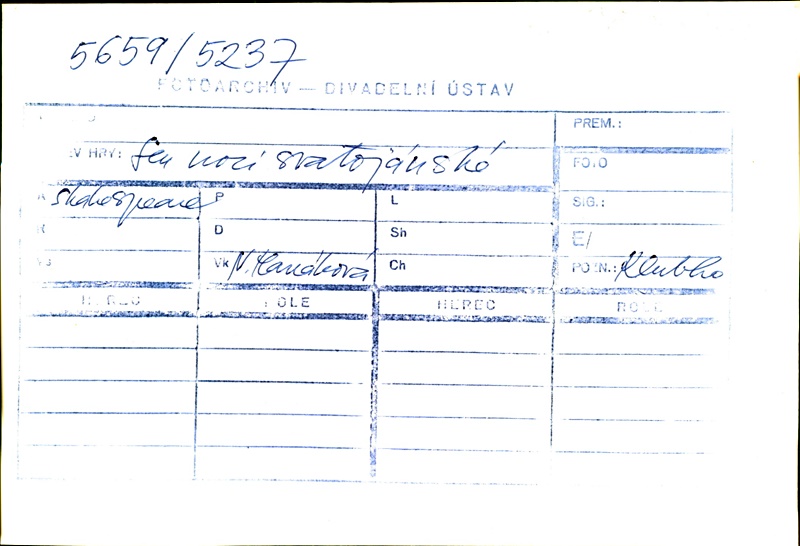 5659/5237
FOTOARCHIV — DIVADELNÍ ÚSTAV
PREM.:
EV HRY: Sen noci svatojánské
FOTO
A Shakespeare P L SIG.:
D Sh E/
Vk N. Hanáková Ch POZN.: Klubko
HEREC ROLE HEREC ROLE